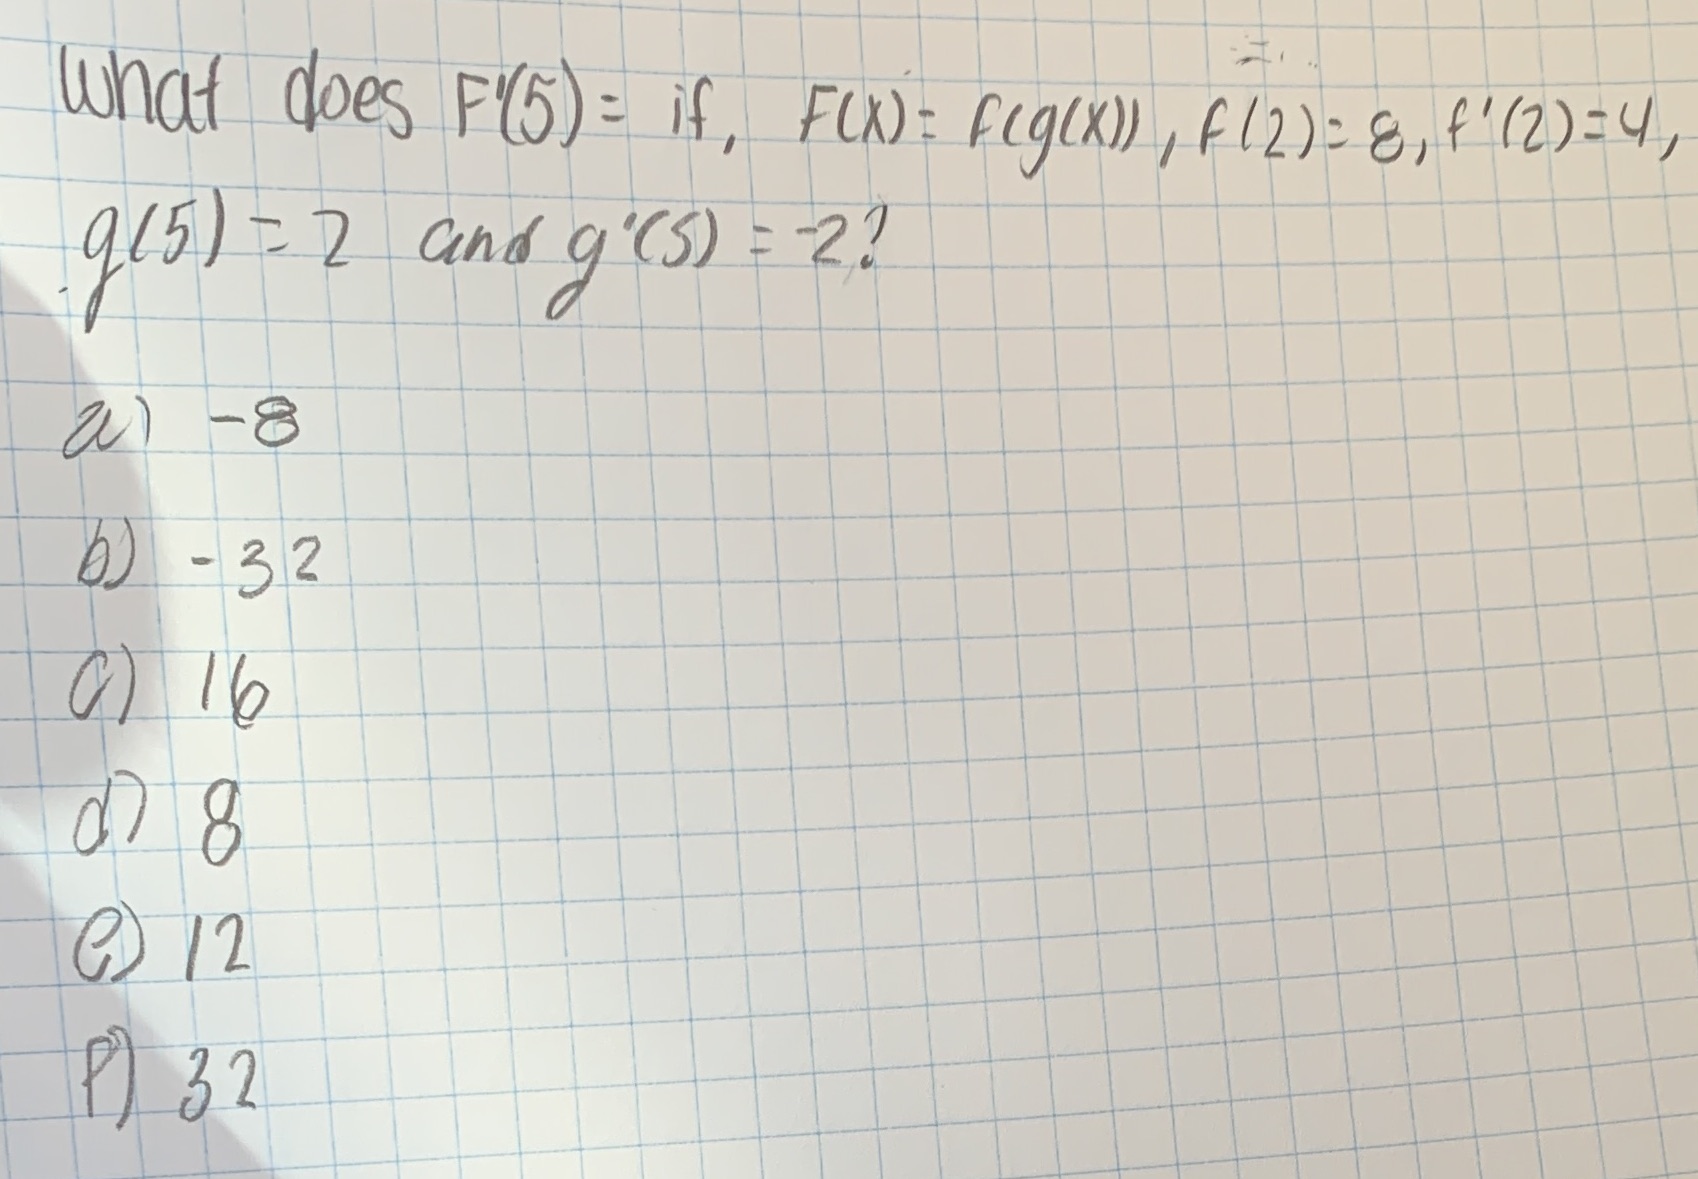 What does F'(5) = if, F(x) = f(g(x)), f(2) = 8, f'(2) = 4,
g(5) = 2 and g'(5) = -2?
a) -8
b) -32
c) 16
d) 8
e) 12
f) 32